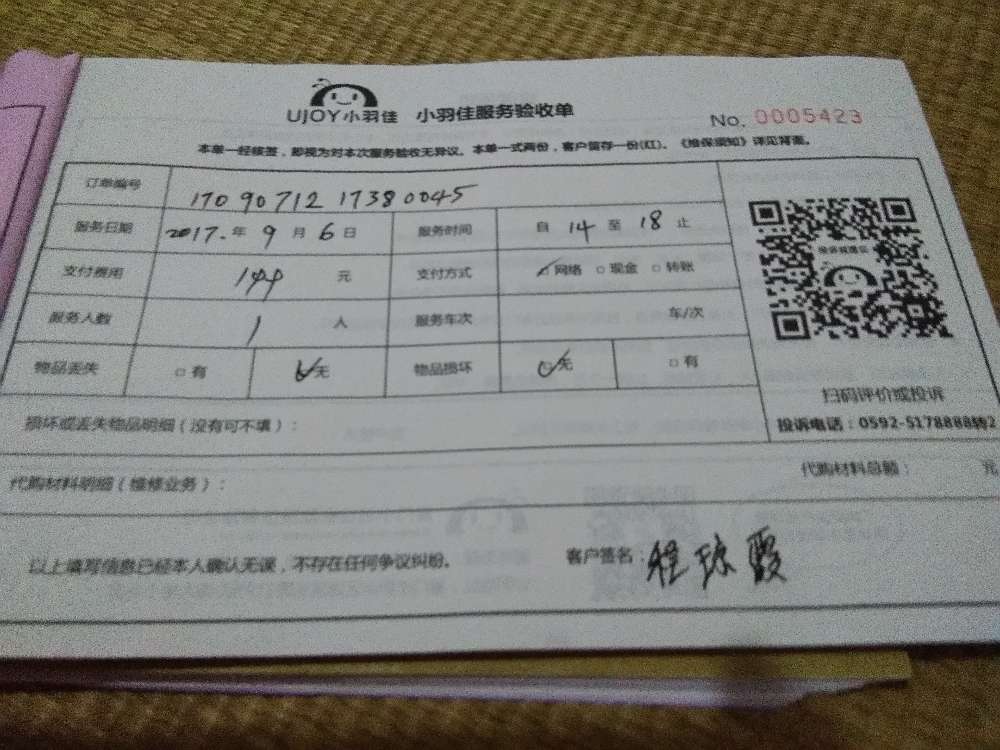 UJOY小羽佳 小羽佳服务验收单
No. 0005423
本单一经核签，即视为对本次服务验收无异议。本单一式两份，客户留存一份(红)。《维保须知》详见背面。
订单编号 17090712 17380045
服务日期 2017.年 9 月 6 日 服务时间 自 14 至 18 止
支付费用 144 元 支付方式 ☑网络 □现金 □转账
服务人数 1 人 服务车次 车/次
物品丢失 □有 ☑无 物品损坏 ☑无 □有
投诉或建议
扫码评价或投诉
投诉电话：0592-5178888转2
损坏或丢失物品明细（没有可不填）：
代购材料明细（维修业务）： 代购材料总额： 元
以上填写信息已经本人确认无误，不存在任何争议纠纷。 客户签名：程琼霞